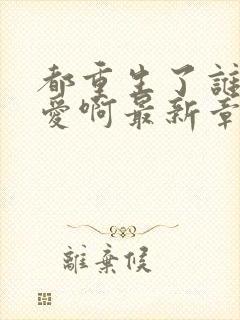 都重生了誰
愛啊最新章
離棄候